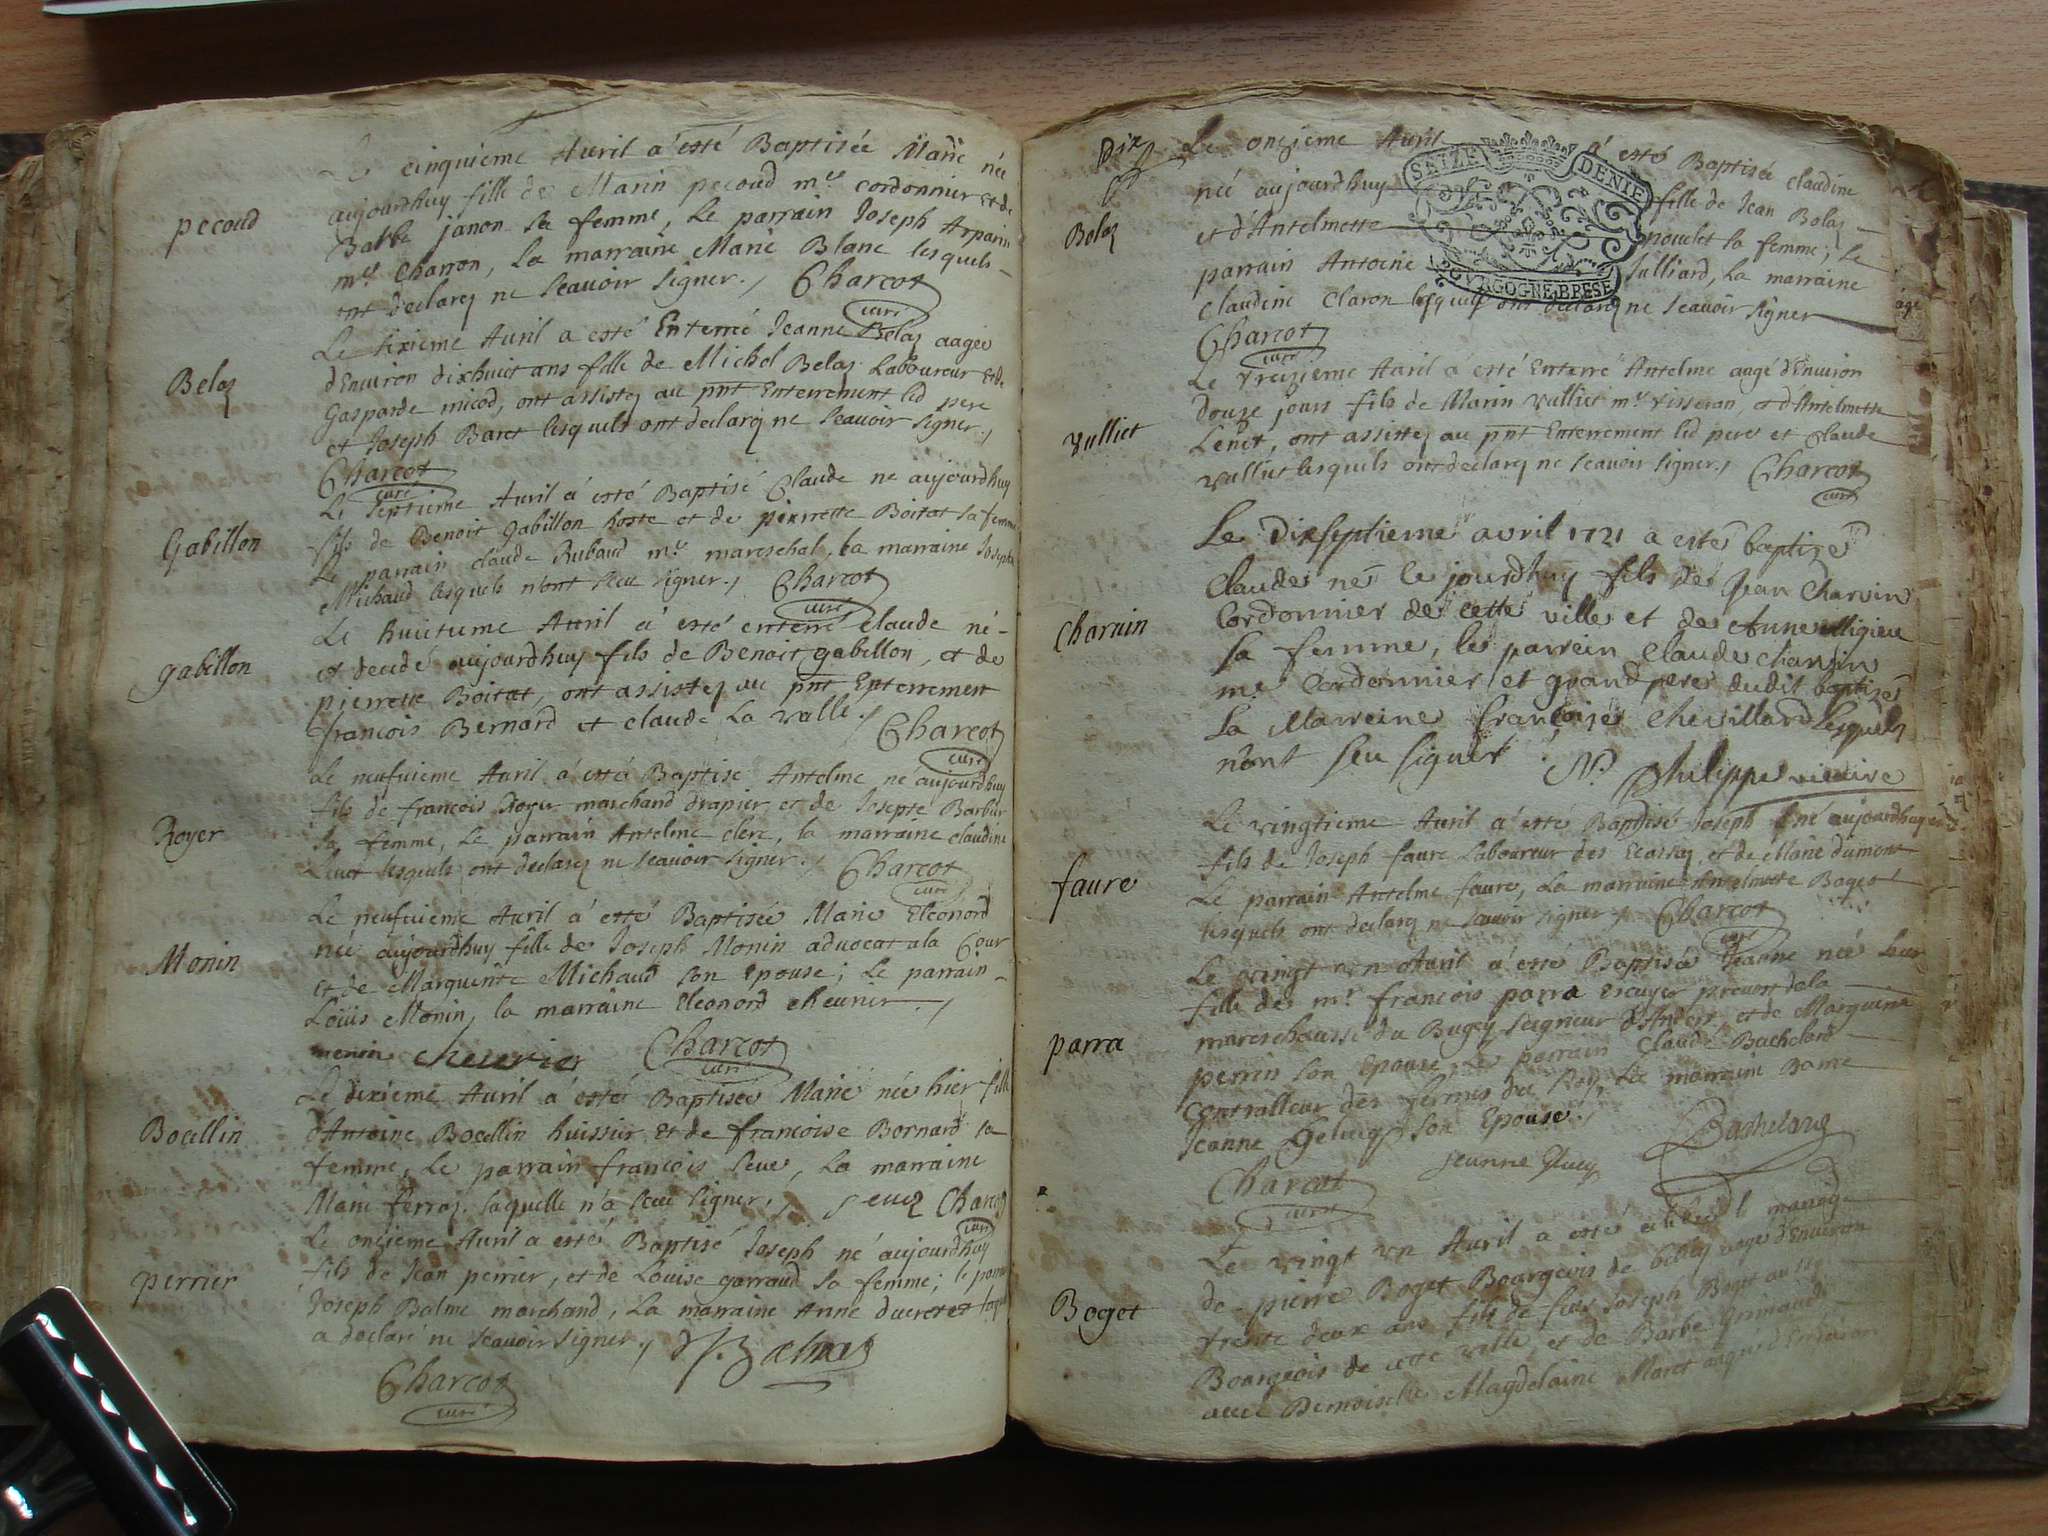 Le cinquieme Avril a esté Baptisée Marie née
aujourdhuy fille de Marin pecoud me cordonnier et de
pecoud
Barbe janon sa femme, Le parrain Joseph Arparin
me Charron, La marraine Marie Blanc lesquels
ont declaréz ne sçavoir signer. Charcot
curé
Le sixieme Avril a esté Enterré Jeanne Belaz aagée
d'Environ dixhuict ans fille de Michel Belaz Laboureur et de
Belaz
Gasparde micod, ont assistez au pnt Enterrement led pere
et Joseph Baret lesquels ont declaréz ne sçavoir signer.
Charcot
curé
Le septieme Avril a esté Baptisé Claude né aujourdhuy
fils de Benoit gabillon hoste et de pierrette Boitat sa femme
Gabillon
Le parrain claude Rubaud me mareschal, La marraine Josepte
Michaud lesquels n'ont sceu signer. Charcot
curé
Le huictieme Avril a esté enterré claude né
et decedé aujourdhuy fils de Benoit gabillon, et de
gabillon
pierrette Boitat, ont assistez au pnt Enterrement
francois Bernard et claude La valle. Charcot
curé
Le neufvieme Avril a esté Baptisé Antelme né aujourdhuy
fils de francois Royer marchand drapier et de Josepte Barbier
Royer
sa femme, Le parrain Antelme clerc, la marraine claudine
lesquels ont declaréz ne sçavoir signer. Charcot
curé
Le neufvieme Avril a esté Baptisée Marie Eleonord
née aujourdhuy fille de Joseph Monin advocat a la Cour
Monin
et de Marguerite Michaud son Epouse; Le parrain
Louis Monin, la marraine Eleonord Meunier
monin Charcot
curé
Le dixieme Avril a esté Baptisée Marie née hier fille
d'Antoine Bocellin huissier et de francoise Bornard sa
Bocellin
femme, Le parrain francois Seve, La marraine
Marie ferraz laquelle n'a sceu signer. Charcot
curé
Le onzieme Avril a esté Baptisé Joseph né aujourdhuy
fils de Jean perrier, et de Louise garraud sa femme; le parrain
perrier
Joseph Balme marchand, La marraine Anne ducret
a declaré ne sçavoir signer. J Balme
Charcot
curé
Dix
Le onzieme Avril a esté Baptisée claudine
SEIZE DENIE
née aujourdhuy fille de Jean Bolaz
Bolaz
et d'Antelmette pouclet sa femme; Le
parrain Antoine Julliard, La marraine
BOVRGOGNE BRESE
claudine Claron lesquels ont declaréz ne sçavoir signer
Charcot
curé
Le treizieme Avril a esté Enterré Antelme aagé d'Environ
douze jours fils de Marin vulliet me tisseran, et d'Antelmette
vulliet
Lenet, ont assistez au pnt Enterrement led pere et Claude
vulliet lesquels ont declaréz ne sçavoir signer. Charcot
curé
Le Dixseptieme avril 1721 a esté baptizé
Claude né le jourdhuy fils de Jean Charvin
Charvin
Cordonnier de cette ville et de Anne
sa femme, le parrein Claude charvin
me Cordonnier et grand pere dudit baptizé
La Marreine françoise chevillard lesquels
n'ont sceu signer N. Philippe vicaire
Le vingtieme Avril a esté Baptisé Joseph né aujourdhuy
fils de Joseph faure Laboureur des Ecassaz et de Marie dumont
faure
Le parrain Antelme faure, La marraine Antelmette Baget
lesquels ont declaréz ne sçavoir signer. Charcot
curé
Le vingt un Avril a esté Baptisée Jeanne née hier
fille de mr francois parra Escuyer prevost de la
parra
mareschaussé du Bugey seigneur d'Andert, et de Marguerite
perrin son Epouse, Le parrain Claude Bachelard
Controlleur des fermes du Roy, La marraine Dame
Jeanne Gelucy son Epouse.
Jeanne Bachelard
Charcot
curé
Le vingt un Avril a esté celebré l mariage
de pierre Boget Bourgeois de belley aagé d'Environ
Boget
trente deux ans fils de feu Joseph Boget aussy
Bourgeois de cette ville et de Barbe Grimaud
avec Demoiselle Magdelaine Moret aagée d'Environ